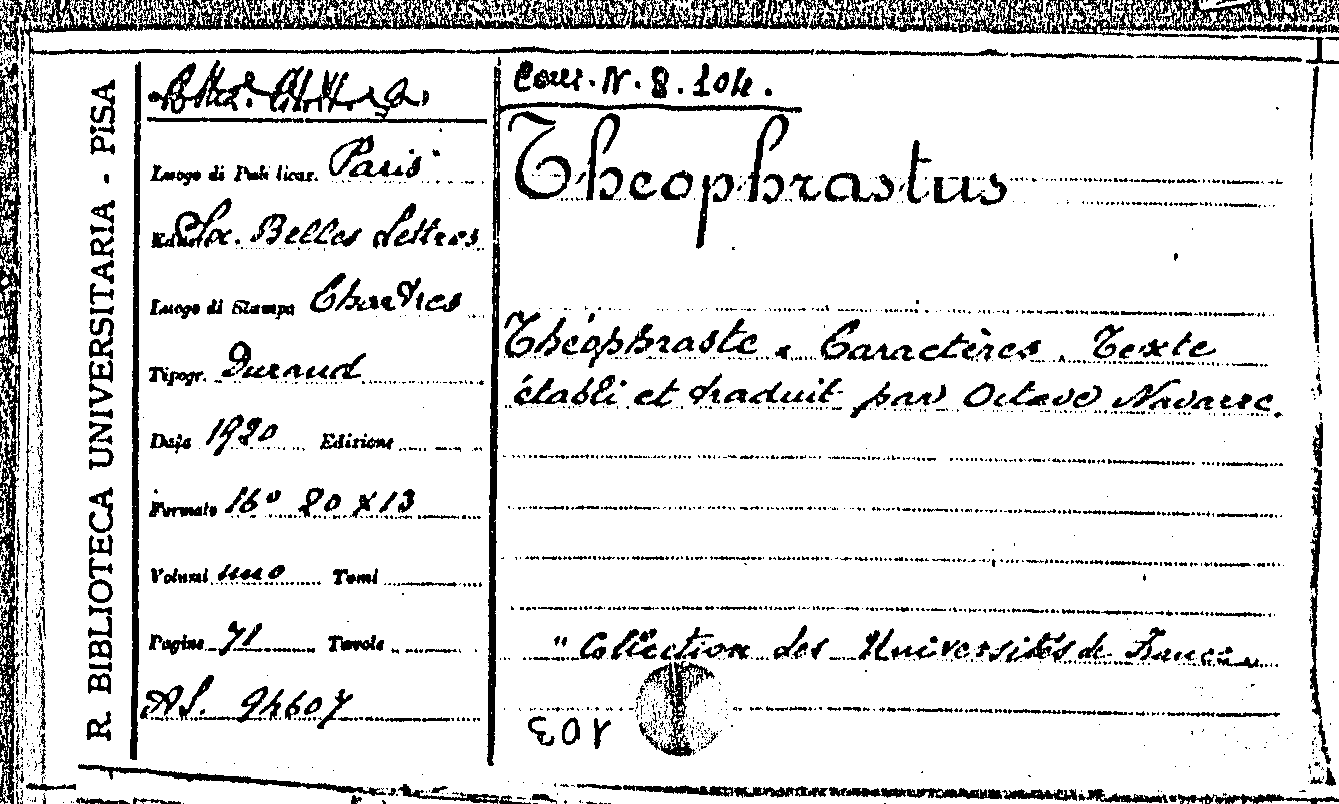 R. BIBLIOTECA UNIVERSITARIA - PISA
Luogo di Pubblicaz. Paris
Soc. Belles Lettres
Luogo di Stampa Chartres
Tipogr. Durand
Data 1920 Edizione
Formato 16° 20 x 13
Volumi uno Tomi
Pagine 71 Tavole
AS. 94607
Coll. N. 8. 104.
Theophrastus
Théophraste. Caractères. Texte
établi et traduit par Octave Navarre.
"Collection des Universités de France"